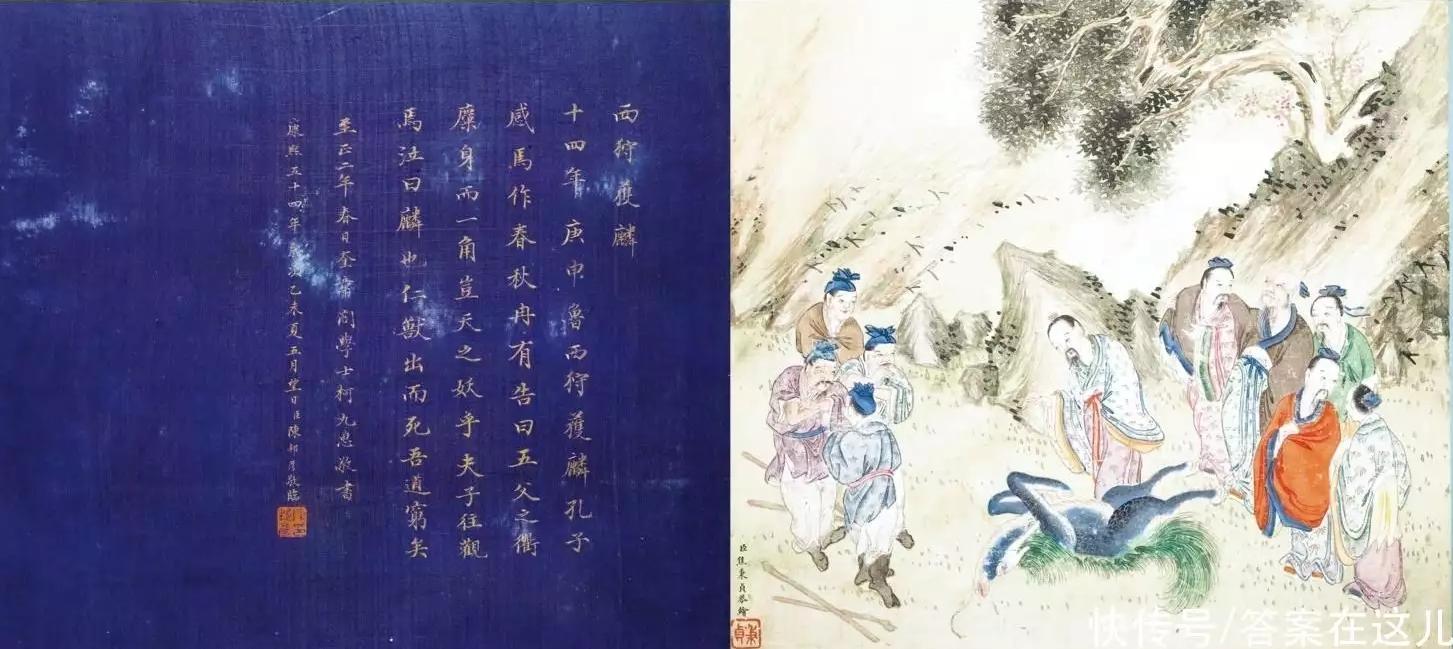 西狩獲麟
十四年庚申魯西狩獲麟孔子
感焉作春秋冉有告曰五父之衢
麇身而一角豈天之妖乎夫子往觀
焉泣曰麟也仁獸出而死吾道窮矣
至正二年春日奎章閣學士柯九思敬書
康熙五十四年歲次乙未夏五月望日臣陳邦彥敬臨
臣焦秉貞恭繪
秉貞
快传号/答案在这儿